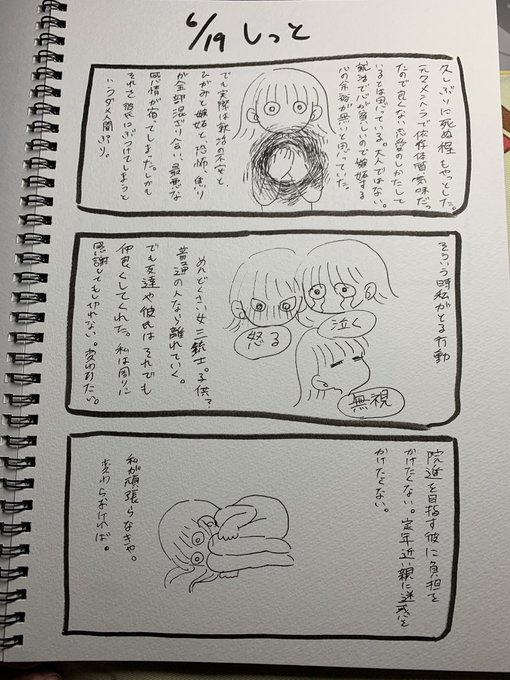 6/19 しっと
久しぶりに死ぬ程もやっとした。
元々メンヘラで依存体質気味だっ
たので良くない恋愛のしかたして
いるとは思っている。大人ではない。
就活で心が貧しいので嫉妬する
心の余裕が無いと思っていた。
でも実際は就活の不安と、
ひがみと嫉妬と恐怖、焦り
が全部混ざり合い、最悪な
感情が宿ってしまった。しかも
それを彼氏にぶつけてしまうと
いうダメ人間ぶり。
そういう時私がとる行動
泣く
怒る
無視
めんどくさい女三銃士。子供?
普通の人なら離れていく。
でも友達や彼氏はそれでも
仲良くしてくれた。私は周りに
感謝してもしきれない。変わりたい。
院進を目指す彼に負担を
かけたくない。定年近い親に迷惑を
かけたくない。
私が頑張らなきゃ。
変わらなければ。